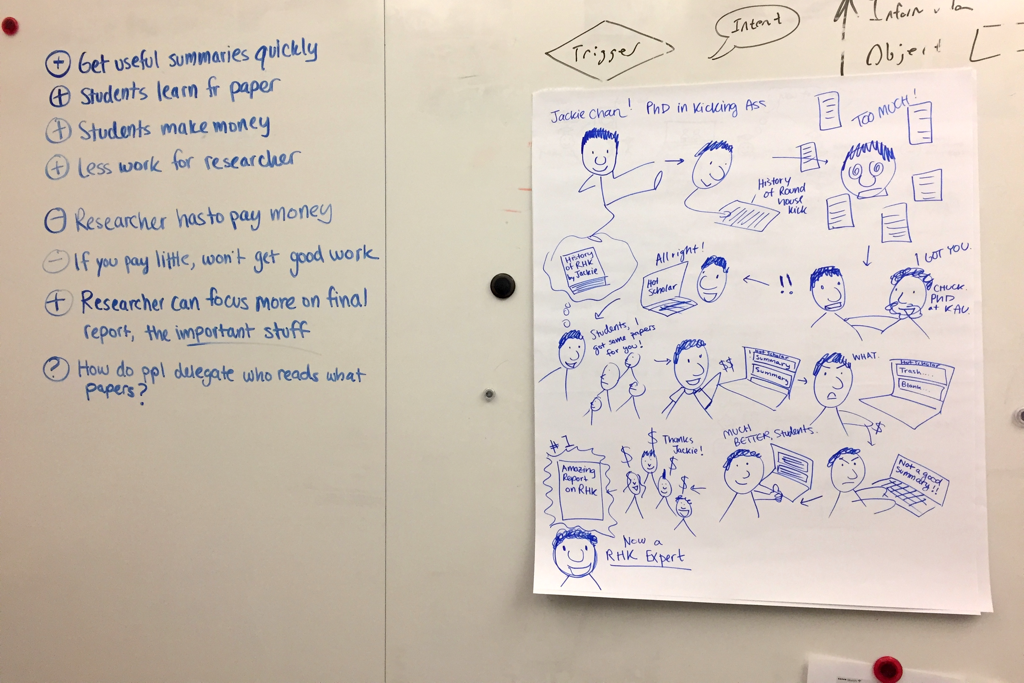 ⊕ Get useful summaries quickly
⊕ Students learn fr paper
⊕ Students make money
⊕ Less work for researcher
⊖ Researcher has to pay money
⊖ If you pay little, won't get good work
⊕ Researcher can focus more on final
report, the important stuff
? How do ppl delegate who reads what
papers?
Trigger
Intent
Object
Jackie Chan! PhD in Kicking Ass
History
of Round
House
Kick
TOO MUCH!
I GOT YOU.
CHUCK.
PhD
at KAU.
!!
All right!
Hot
Scholar
History
of RHK
by Jackie
Students, I
got some papers
for you!
$$
Hot Scholar
Summary
Summary
WHAT.
Hot Scholar
Trash....
Blank
$
Not a good
Summary!!
MUCH
BETTER, Students.
$ Thanks
Jackie!
$
$
$
#1
Amazing
Report
on RHK
Now a
RHK Expert